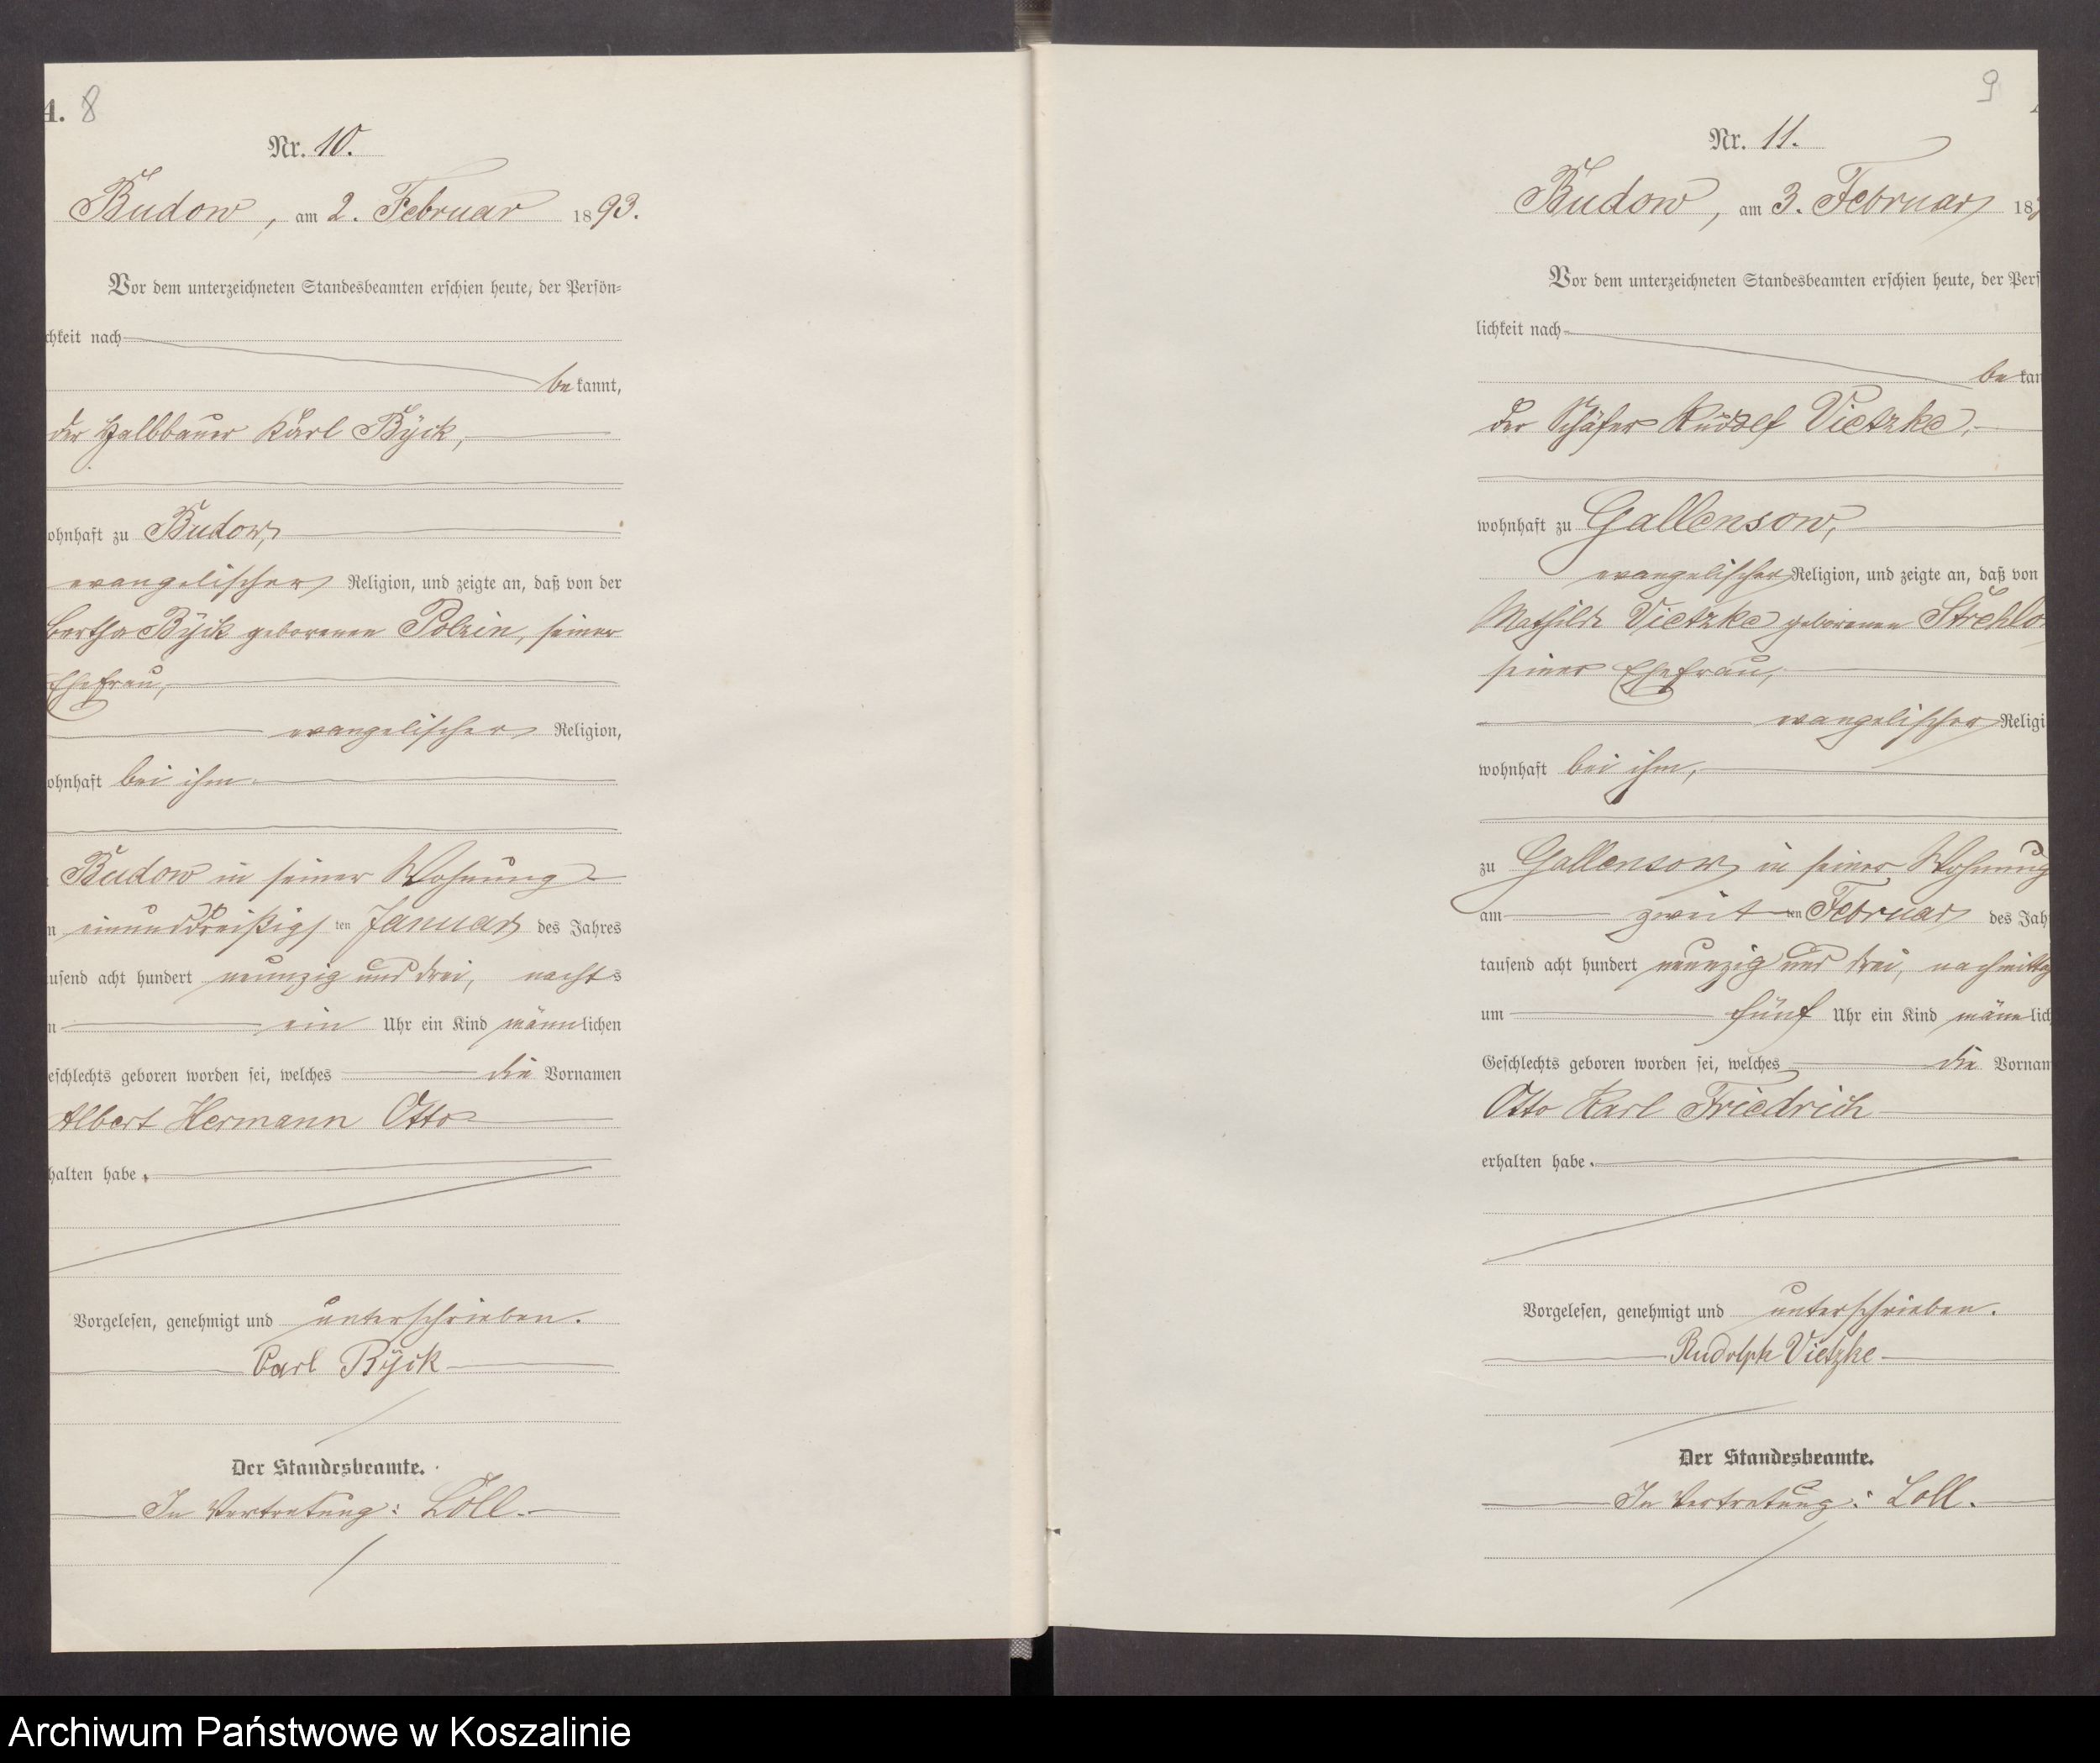 A. 8
Nr. 10.
Budow, am 2. Februar 1893.
Vor dem unterzeichneten Standesbeamten erschien heute, der Persön-
chkeit nach
be kannt,
der Halbbauer Karl Byck,
ohnhaft zu Budow,
evangelischer Religion, und zeigte an, daß von der
Bertha Byck geborenen Polzin, seiner
Ehefrau,
evangelischer Religion,
ohnhaft bei ihm
Budow in seiner Wohnung
einunddreißigsten Januar des Jahres
usend acht hundert neunzig und drei, nachts
ein Uhr ein Kind männlichen
eschlechts geboren worden sei, welches die Vornamen
Albert Hermann Otto
halten habe.
Vorgelesen, genehmigt und unterschrieben.
Carl Byck
Der Standesbeamte.
In Vertretung: Loll.
9
Nr. 11.
Budow, am 3. Februar 18
Vor dem unterzeichneten Standesbeamten erschien heute, der Pers
lichkeit nach
be kan
der Schäfer Rudolf Vietzke,
wohnhaft zu Gallensow,
evangelischer Religion, und zeigte an, daß von
Mathilde Vietzke geborenen Strehlo
seiner Ehefrau,
evangelischer Religi
wohnhaft bei ihm,
zu Gallensow in seiner Wohnung
am zweiten Februar des Jah
tausend acht hundert neunzig und drei, nachmittag
um fünf Uhr ein Kind männlich
Geschlechts geboren worden sei, welches die Vornam
Otto Karl Friedrich
erhalten habe.
Vorgelesen, genehmigt und unterschrieben.
Rudolph Vietzke
Der Standesbeamte.
In Vertretung: Loll.
Archiwum Państwowe w Koszalinie